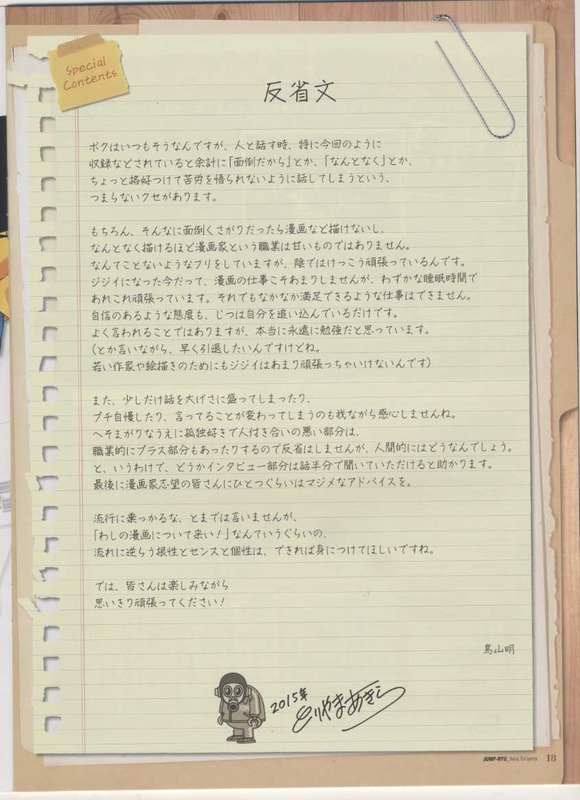 Special
Contents
反省文
ボクはいつもそうなんですが、人と話す時、特に今回のように
収録などされていると余計に「面倒だから」とか、「なんとなく」とか、
ちょっと格好つけて苦労を悟られないように話してしまうという、
つまらないクセがあります。
もちろん、そんなに面倒くさがりだったら漫画など描けないし、
なんとなく描けるほど漫画家という職業は甘いものではありません。
なんてことないようなフリをしていますが、陰ではけっこう頑張っているんです。
ジジイになった今だって、漫画の仕事こそあまりしませんが、わずかな睡眠時間で
あれこれ頑張っています。それでもなかなか満足できるような仕事はできません。
自信のあるような態度も、じつは自分を追い込んでいるだけです。
よく言われることではありますが、本当に永遠に勉強だと思っています。
(とか言いながら、早く引退したいんですけどね。
若い作家や絵描きのためにもジジイはあまり頑張っちゃいけないんです)
また、少しだけ話を大げさに盛ってしまったり、
プチ自慢したり、言ってることが変わってしまうのも我ながら感心しませんね。
へそまがりなうえに孤独好きで人付き合いの悪い部分は、
職業的にプラス部分もあったりするので反省はしませんが、人間的にはどうなんでしょう。
と、いうわけで、どうかインタビュー部分は話半分で聞いていただけると助かります。
最後に漫画家志望の皆さんにひとつぐらいはマジメなアドバイスを。
流行に乗っかるな、とまでは言いませんが、
「わしの漫画について来い!」なんていうぐらいの、
流れに逆らう根性とセンスと個性は、できれば身につけてほしいですね。
では、皆さんは楽しみながら
思いきり頑張ってください!
鳥山明
2015年
とりやまあきら
JUMP-RYU_Akira Toriyama 18